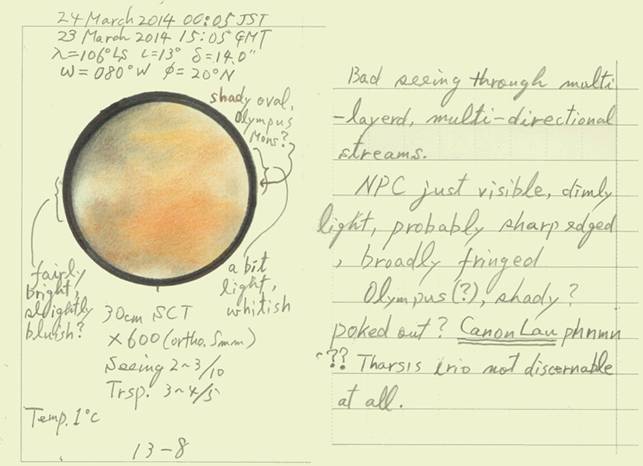 24 March 2014 00:05 JST
23 March 2014 15:05 GMT
λ=106°Ls ι=13° δ=14.0"
ω=080°W φ=20°N
shady oval,
Olympus
Mons?
fairly
bright,
slightly
bluish?
a bit
light,
whitish
30cm SCT
×600 (ortho. 5mm)
Seeing 2~3/10
Trsp. 3~4/5
Temp. 1°c
13-8
Bad seeing through multi
-layerd, multi-directional
streams.
NPC just visible, dimly
light, probably sharp edged
, broadly fringed
Olympus(?), shady?
poked out? Canon Lau phnmn
?? Tharsis trio not discernable
at all.